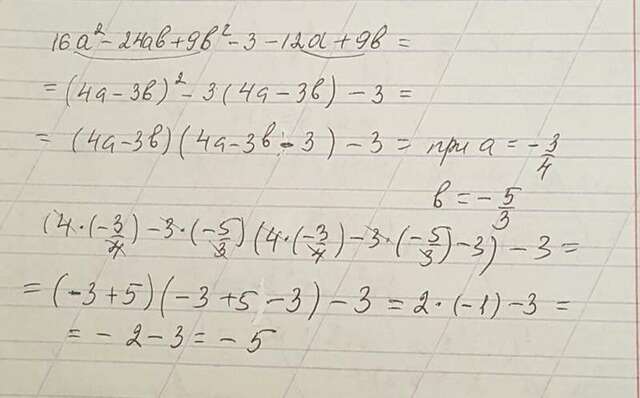 16a² - 24ab + 9b² - 3 - 12a + 9b =
= (4a - 3b)² - 3(4a - 3b) - 3 =
= (4a - 3b)(4a - 3b - 3) - 3 = при a = -3/4
b = -5/3
(4·(-3/4) - 3·(-5/3)(4·(-3/4) - 3·(-5/3) - 3) - 3 =
= (-3 + 5)(-3 + 5 - 3) - 3 = 2·(-1) - 3 =
= - 2 - 3 = - 5